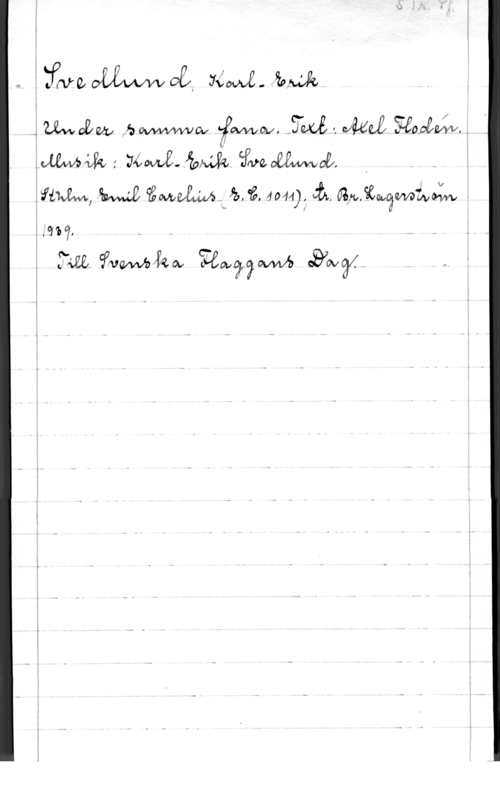 Svedlund, Karl-Erik
Under samma fana. Text: Axel Flodén.
Musik: Karl-Erik Svedlund.
Sthlm, Emil Carelius (E. C. 1011); tr. Br. Lagerström
1939.
Till Svenska Flaggans Dag.